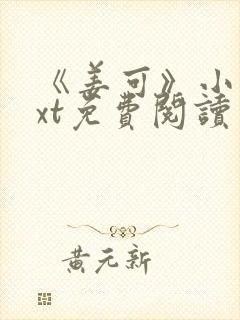 《姜可》小
xt免費閱讀
黃元新